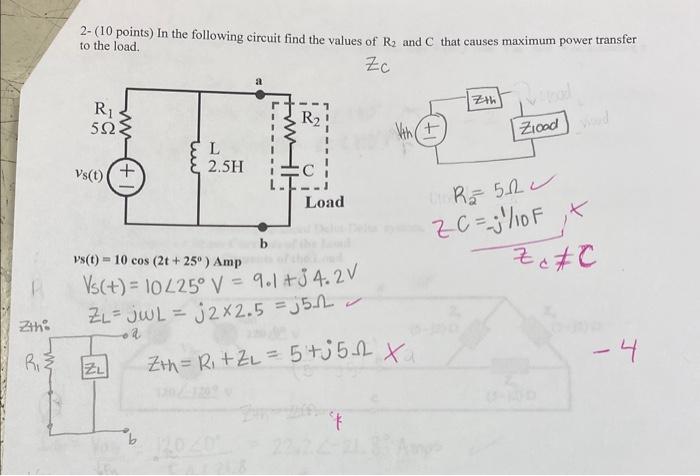 2- (10 points) In the following circuit find the values of R2 and C that causes maximum power transfer
to the load.
Zc
a
R1
5Ω
R2
L
2.5H
Vs(t)
C
Load
b
Zth
Vth
Zload
R2= 5Ω ✓
ZC = -j 1/10 F X
Zc ≠ C
vs(t) = 10 cos (2t + 25°) Amp
Vs(t) = 10∠25° V = 9.1 + j 4.2V
ZL = jωL = j2×2.5 = j5Ω ✓
Zth:
a
R1
ZL
b
Zth = R1 + ZL = 5 + j5Ω X
-4